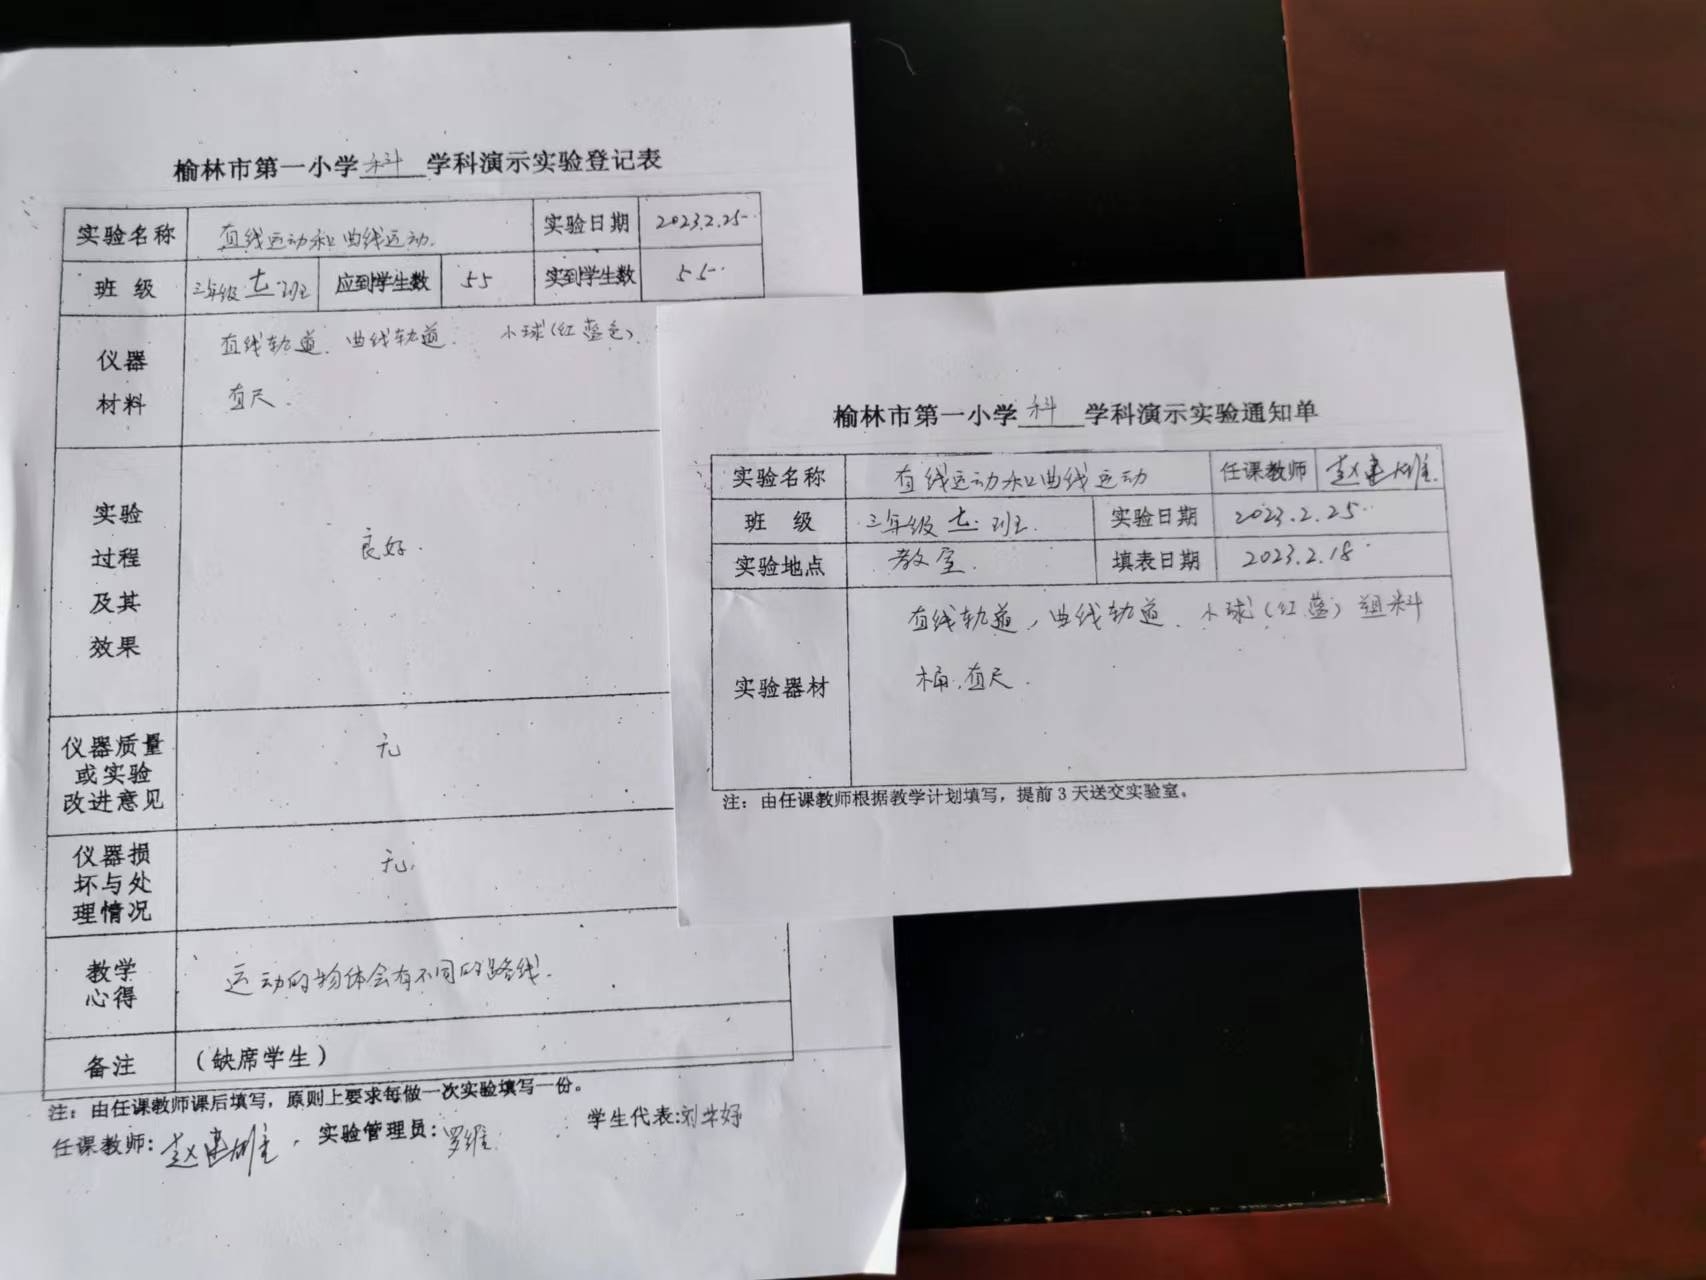 榆林市第一小学 科 学科演示实验登记表
实验名称 直线运动和曲线运动. 实验日期 2023.2.25
班 级 三年级 七 班 应到学生数 55 实到学生数 55
仪器 直线轨道、曲线轨道. 小球(红蓝色).
材料 直尺.
实验
过程 良好.
及其
效果
仪器质量 无
或实验
改进意见
仪器损 无.
坏与处
理情况
教学 运动的物体会有不同的路线.
心得
备注 (缺席学生)
注：由任课教师课后填写，原则上要求每做一次实验填写一份。
任课教师：赵建雄 实验管理员：罗维 学生代表：刘 好
榆林市第一小学 科 学科演示实验通知单
实验名称 直线运动和曲线运动 任课教师 赵建雄
班 级 三年级 七 班. 实验日期 2023.2.25
实验地点 教室. 填表日期 2023.2.18
直线轨道，曲线轨道、小球(红蓝) 料
实验器材 桶.直尺.
注：由任课教师根据教学计划填写，提前3天送交实验室。